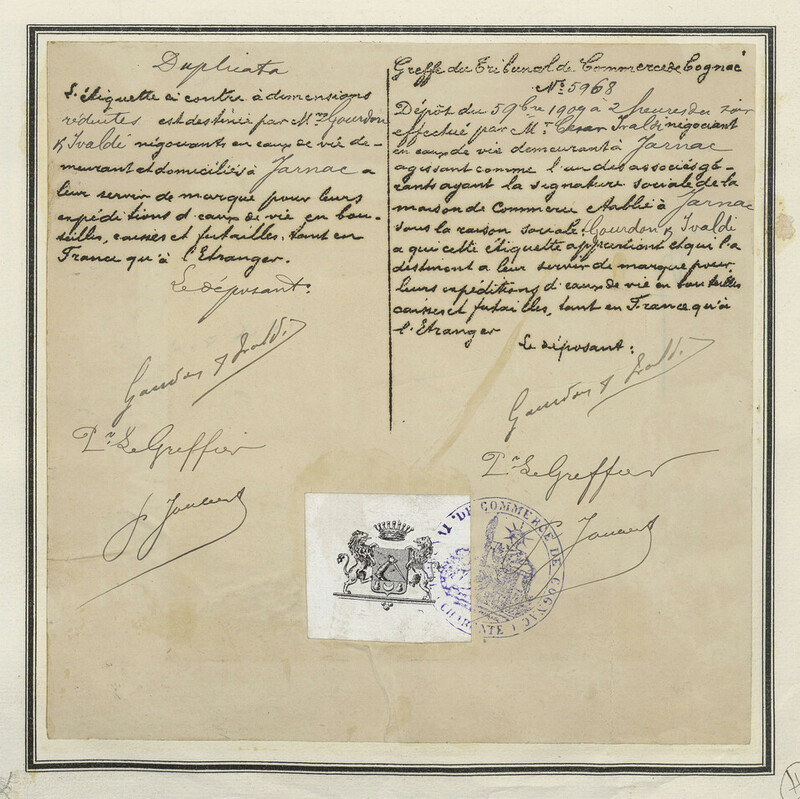 Duplicata
L'étiquette ci contre à dimensions
réduites est destinée par Mrs Gourdon
& Ivaldi négociants en eaux de vie de-
meurant et domiciliés à Jarnac a
leur servir de marque pour leurs
expéditions d'eaux de vie en bou-
teilles, caisses et futailles, tant en
France qu'à l'Etranger.
Le déposant:
Gourdon & Ivaldi
Pr Le Greffier
Greffe du Tribunal de Commerce de Cognac
No 5968
Dépôt du 5 9bre 1909 à 2 heures du soir
effectué par Mr César Ivaldi négociant
en eaux de vie demeurant à Jarnac
agissant comme l'un des associés gé-
rants ayant la signature sociale de la
maison de Commerce établie à Jarnac
sous la raison sociale: Gourdon & Ivaldi
a qui cette étiquette appartient et qui l'a
destinent a leur servir de marque pour
leurs expéditions d'eaux de vie en bouteilles
caisses et futailles, tant en France qu'à
l'Etranger
Le déposant:
Gourdon & Ivaldi
Pr Le Greffier
DE COMMERCE DE COGNAC
CHARENTE